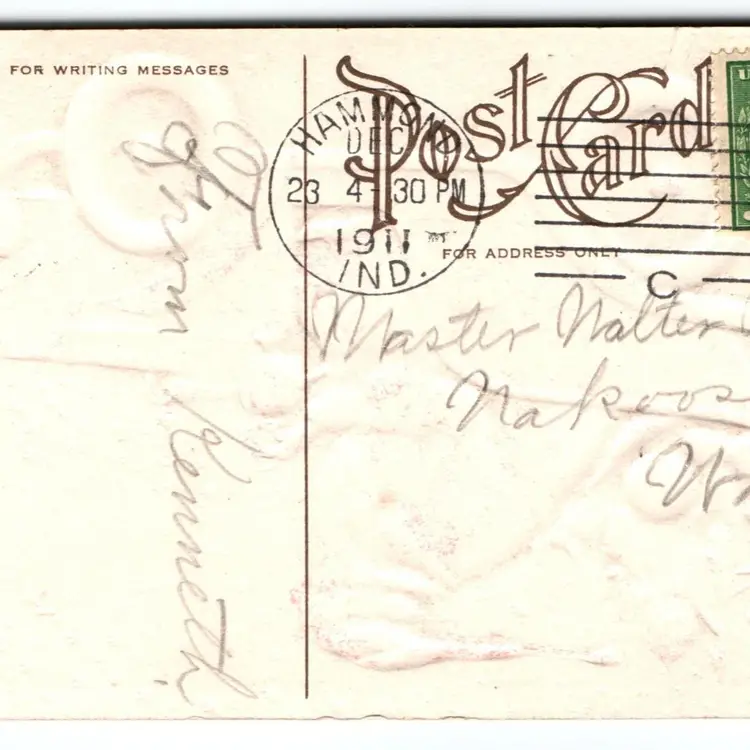 FOR WRITING MESSAGES
Post Card
HAMMOND
DEC
23 4-30 PM
1911
IND.
FOR ADDRESS ONLY
C
Master Walter
Nakoos
From Kenneth